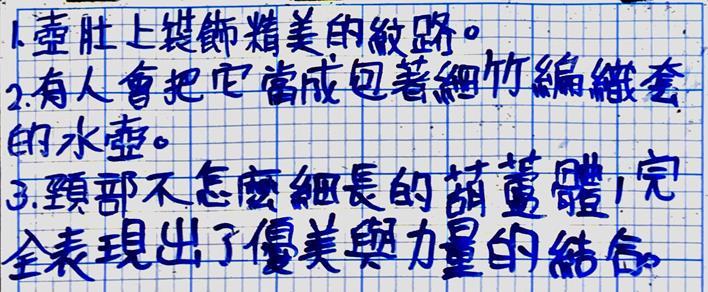 1.壺肚上裝飾精美的紋路。
2.有人會把它當成包著細竹編織套
的水壺。
3.頸部不怎麼細長的葫蘆體,完
全表現出了優美與力量的結合。